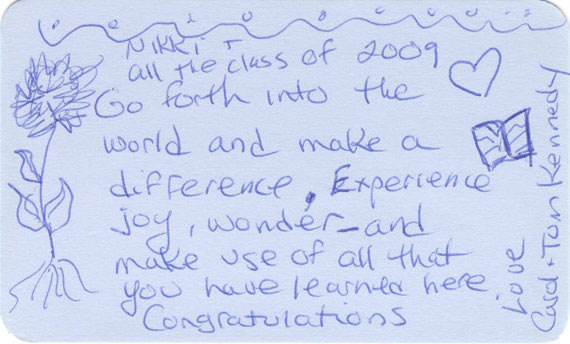 Nikki +
all the class of 2009
Go forth into the
world and make a
difference. Experience
joy, wonder and
make use of all that
you have learned here
Congratulations
Love
Carol + Tom Kennedy